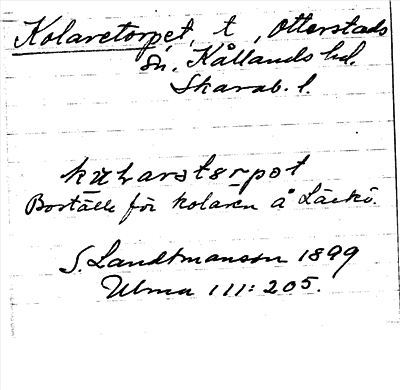 Kolaretorpet, t, Otterstads
sn. Kållands hd.
Skarab. l.
kūLarətɘrpət
Boställe för kolaren å Läckö.
S. Landtmanson 1899
Ulma 111: 205.